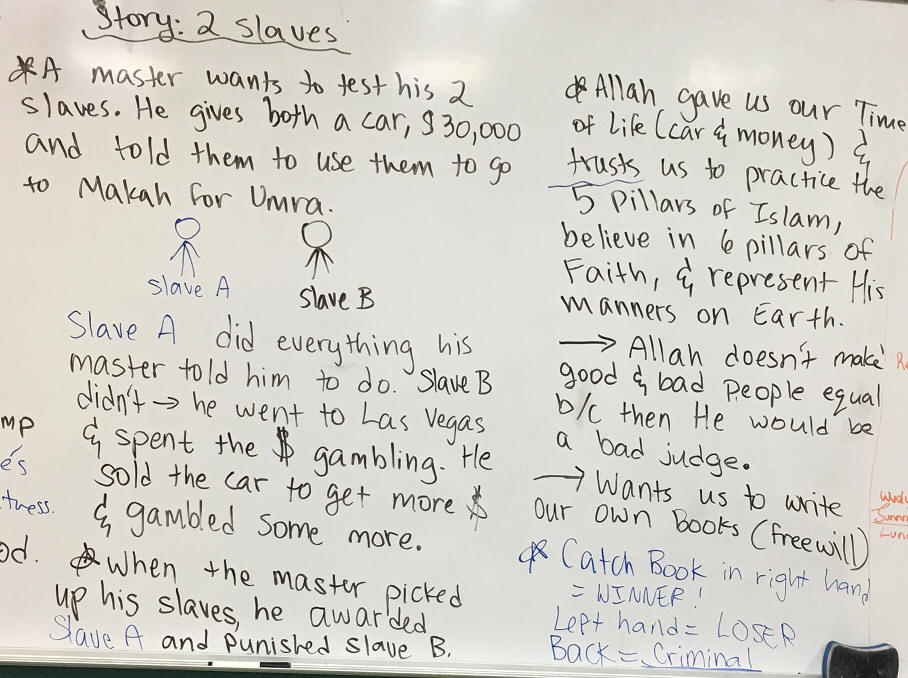 Story: 2 Slaves
*A master wants to test his 2
slaves. He gives both a car, $30,000
and told them to use them to go
to Makah for Umra.
Slave A
Slave B
Slave A did everything his
master told him to do. Slave B
didn't → he went to Las Vegas
& spent the $ gambling. He
sold the car to get more $
& gambled some more.
*When the master picked
up his slaves, he awarded
Slave A and Punished Slave B.
*Allah gave us our Time
of Life (car & money) &
trusts us to practice the
5 Pillars of Islam,
believe in 6 pillars of
Faith, & represent His
manners on Earth.
→ Allah doesn't make
good & bad People equal
b/c then He would be
a bad judge.
→ Wants us to write
our own Books (freewill)
*Catch Book in right hand
= WINNER!
Left hand = LOSER
Back = Criminal